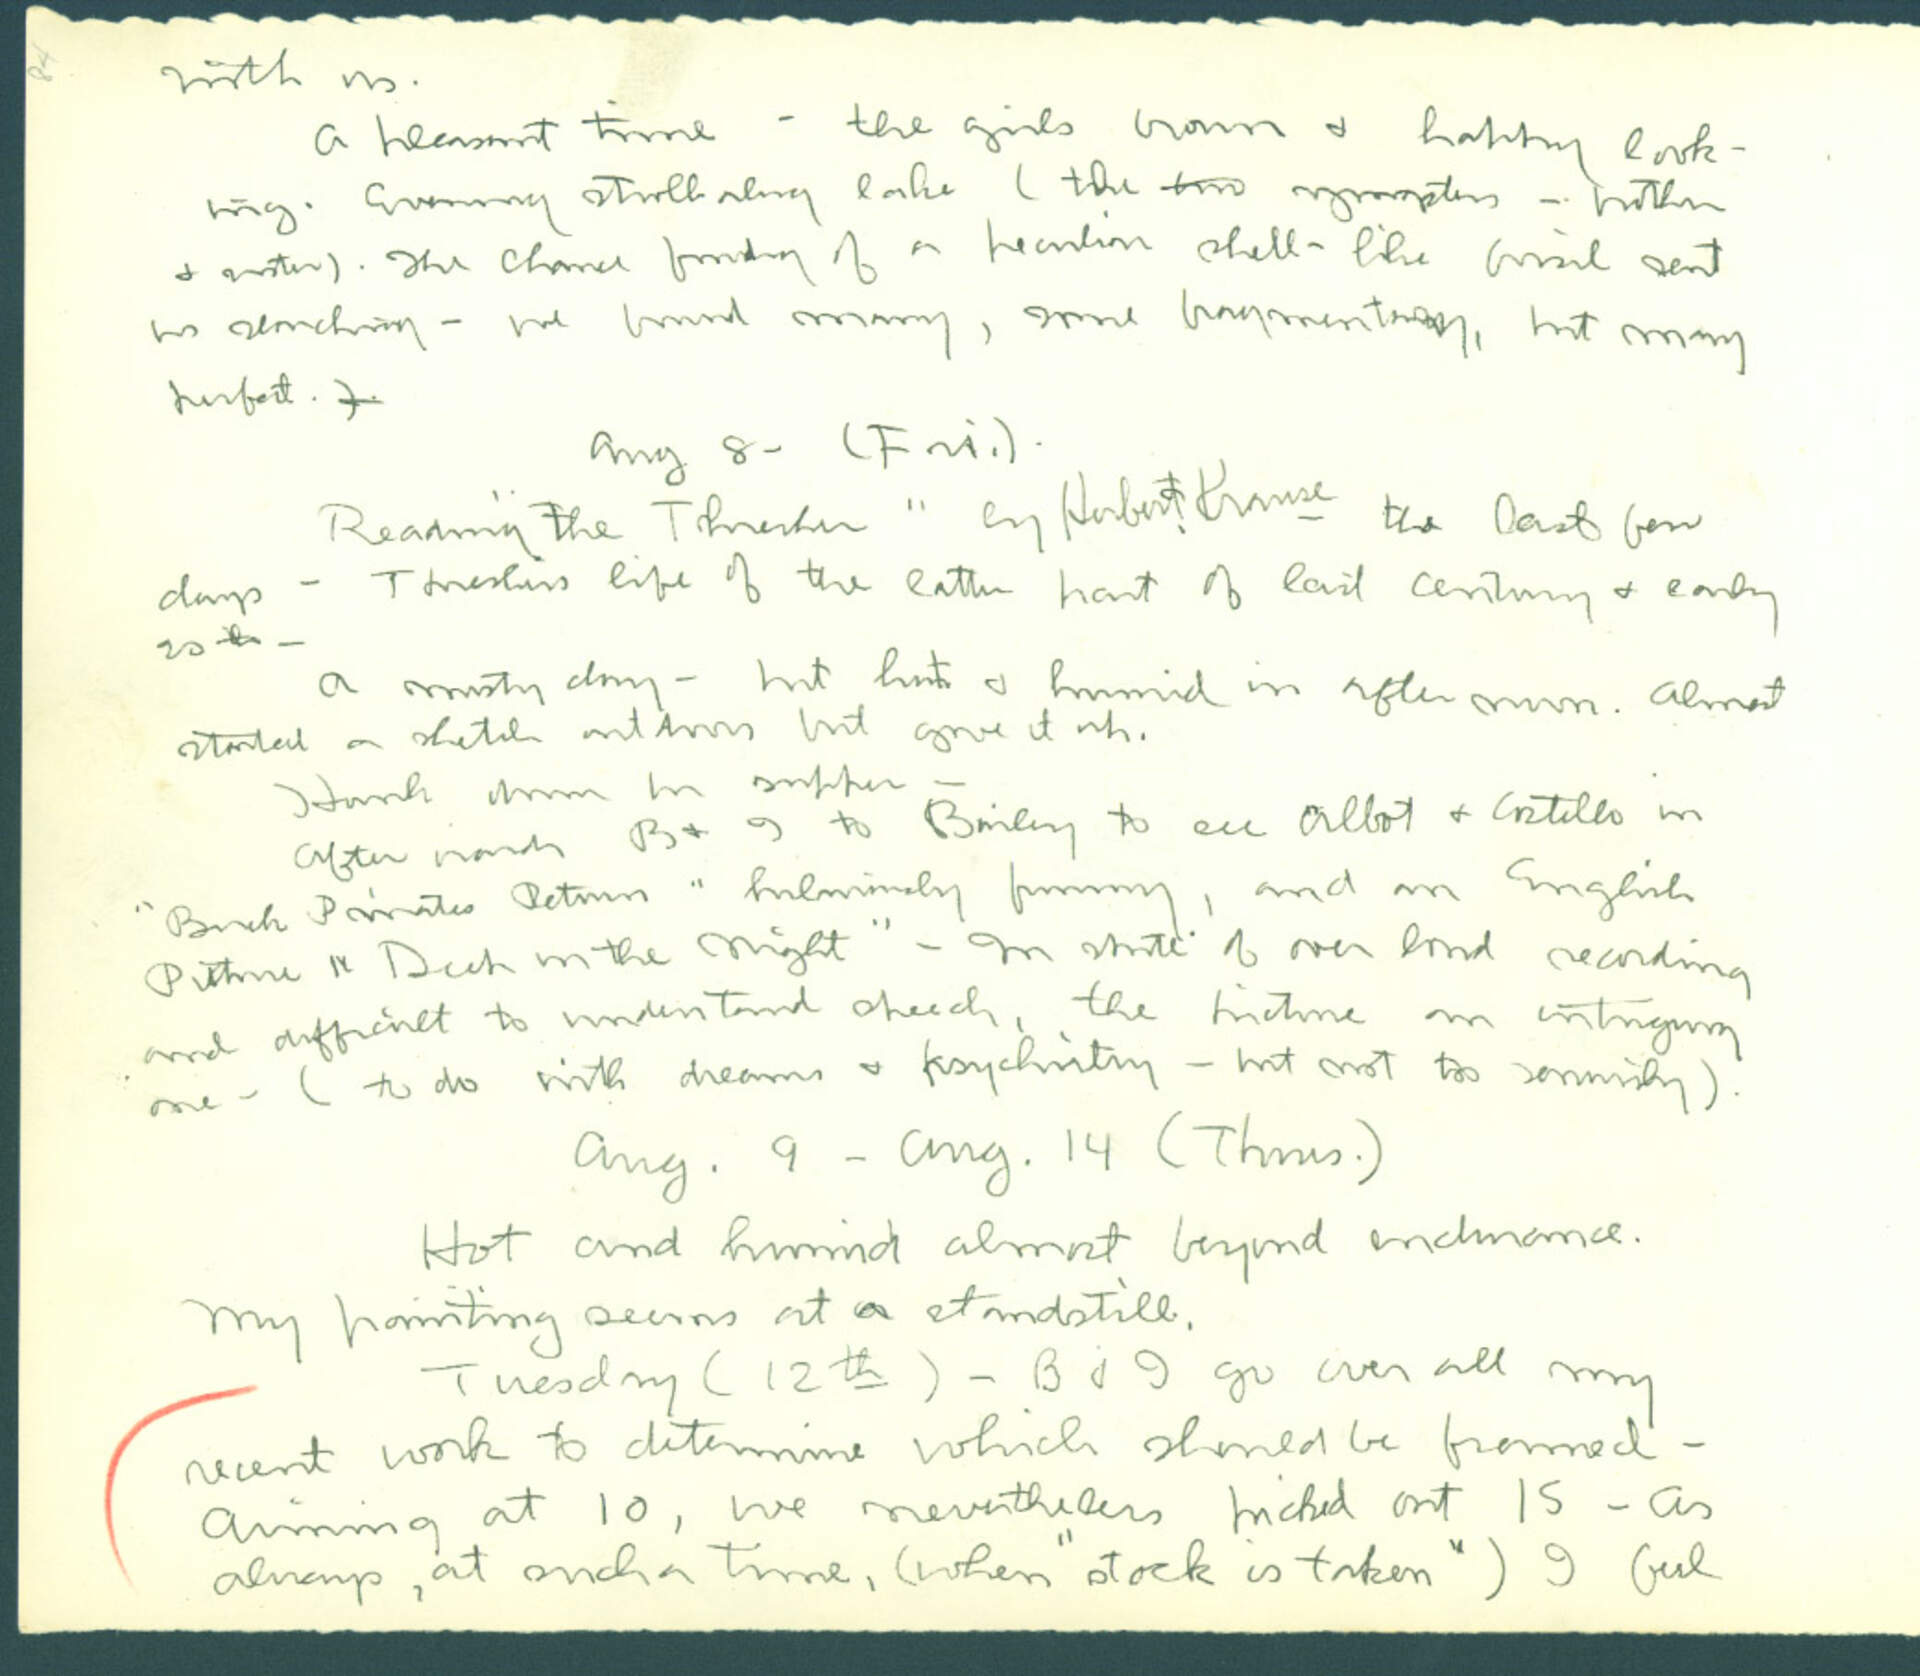 84
with us.
A pleasant time - the girls brown & happy look-
ing. Evening stroll along lake (the two youngsters - brother
& sister). The chance finding of a peculiar shell-like fossil sent
us searching - we found many, some fragmentary, but many
perfect.
Aug 8 - (Fri.).
Reading "The Thresher" by Herbert Krause the last few
days - Threshers life of the latter part of last century & early
20th -
A misty day - but hot & humid in afternoon. Almost
started a sketch outdoors but gave it up.
Hank down for supper -
Afterwards B & I to Bailey to see Abbot & Costello in
"Buck Privates Return" hilariously funny, and an English
Picture "Dark in the Night" - In spite of over loud recording
and difficult to understand speech, the picture an intriguing
one - (to do with dreams & psychiatry - but not too seriously).
Aug. 9 - Aug. 14 (Thurs.)
Hot and humid almost beyond endurance.
My painting seems at a standstill.
Tuesday (12th) - B & I go over all my
recent work to determine which should be framed -
Aiming at 10, we nevertheless picked out 15 - As
always, at such a time, (when "stock is taken") I feel